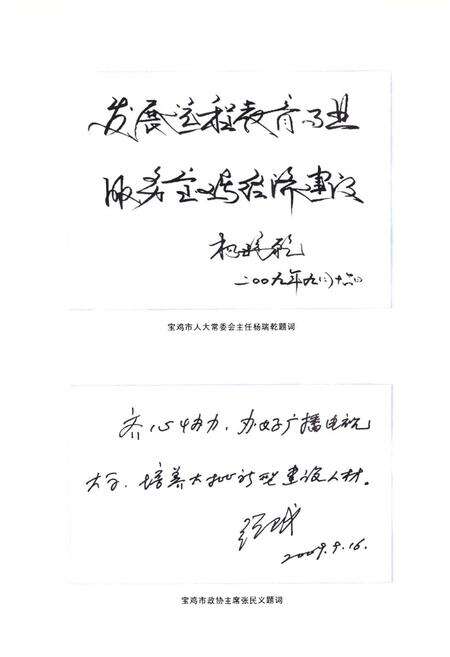 发展远程教育事业
服务宝鸡经济建设
杨瑞乾
二〇〇九年九月十六日
宝鸡市人大常委会主任杨瑞乾题词
齐心协力，办好广播电视
大学，培养大批新型建设人材。
2009.9.16.
宝鸡市政协主席张民义题词